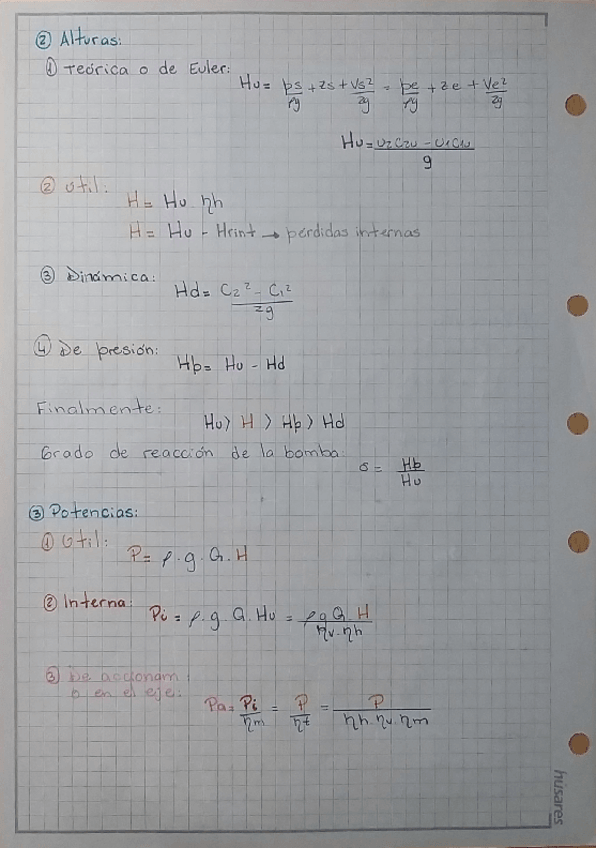 ② Alturas:
① Teórica o de Euler:
Hu = ps/ρg + zs + Vs²/2g = pe/ρg + ze + Ve²/2g
Hu = u₂C₂u - u₁C₁u / g
② Util:
H = Hu . ηh
H = Hu - Hrint → pérdidas internas
③ Dinámica:
Hd = C₂² - C₁² / 2g
④ De presión:
Hp = Hu - Hd
Finalmente:
Hu > H > Hp > Hd
Grado de reacción de la bomba:
σ = Hp / Hu
③ Potencias:
① Util:
P = ρ . g . Q . H
② Interna:
Pi = ρ . g . Q . Hu = ρ g Q H / ηv . ηh
③ De accionam
o en el eje:
Pa = Pi/ηm = P/ηt = P / ηh . ηv . ηm
húsares